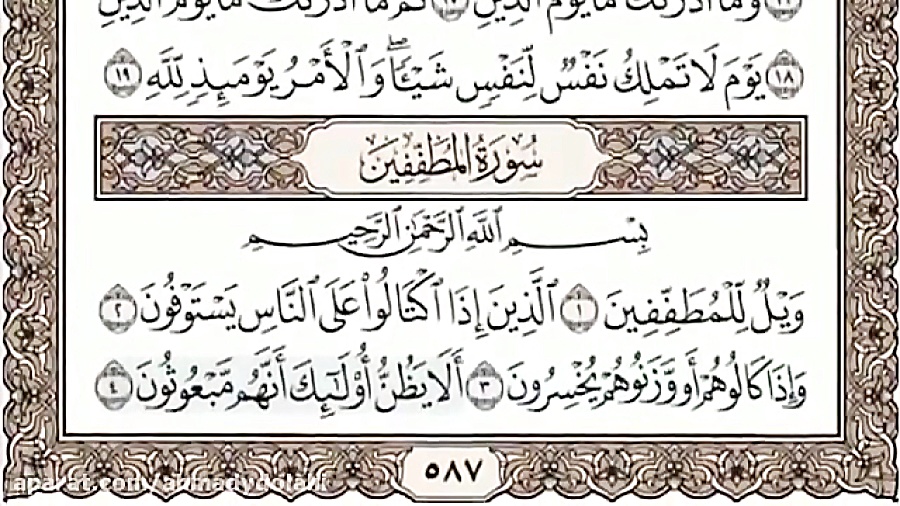 وَمَآ أَدْرَىٰكَ مَا يَوْمُ ٱلدِّينِ ١٧ ثُمَّ مَآ أَدْرَىٰكَ مَا يَوْمُ ٱلدِّينِ
١٨ يَوْمَ لَا تَمْلِكُ نَفْسٌ لِّنَفْسٍ شَيْـًٔا ۖ وَٱلْأَمْرُ يَوْمَئِذٍ لِّلَّهِ ١٩
سُورَةُ المُطَفِّفِينَ
بِسْمِ ٱللَّهِ ٱلرَّحْمَٰنِ ٱلرَّحِيمِ
وَيْلٌ لِّلْمُطَفِّفِينَ ١ ٱلَّذِينَ إِذَا ٱكْتَالُوا۟ عَلَى ٱلنَّاسِ يَسْتَوْفُونَ ٢
وَإِذَا كَالُوهُمْ أَو وَّزَنُوهُمْ يُخْسِرُونَ ٣ أَلَا يَظُنُّ أُو۟لَٰٓئِكَ أَنَّهُم مَّبْعُوثُونَ ٤
٥٨٧